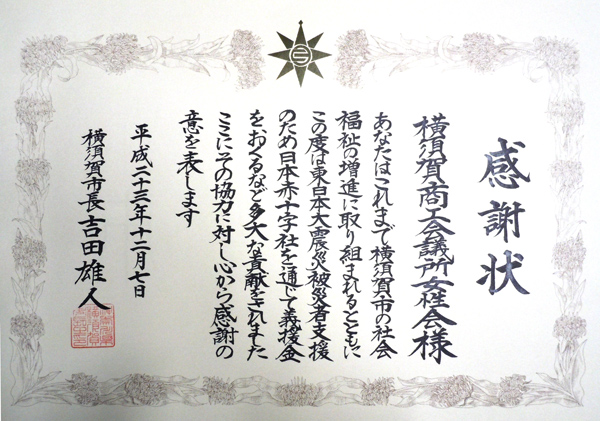 感謝状
横須賀商工会議所女性会様
あなたはこれまで横須賀市の社会
福祉の増進に取り組まれるとともに
この度は東日本大震災被災者支援
のため日本赤十字社を通じて義援金
をおくるなど多大な貢献をされました
ここにその協力に対し心から感謝の
意を表します
平成二十三年十二月七日
横須賀市長吉田雄人